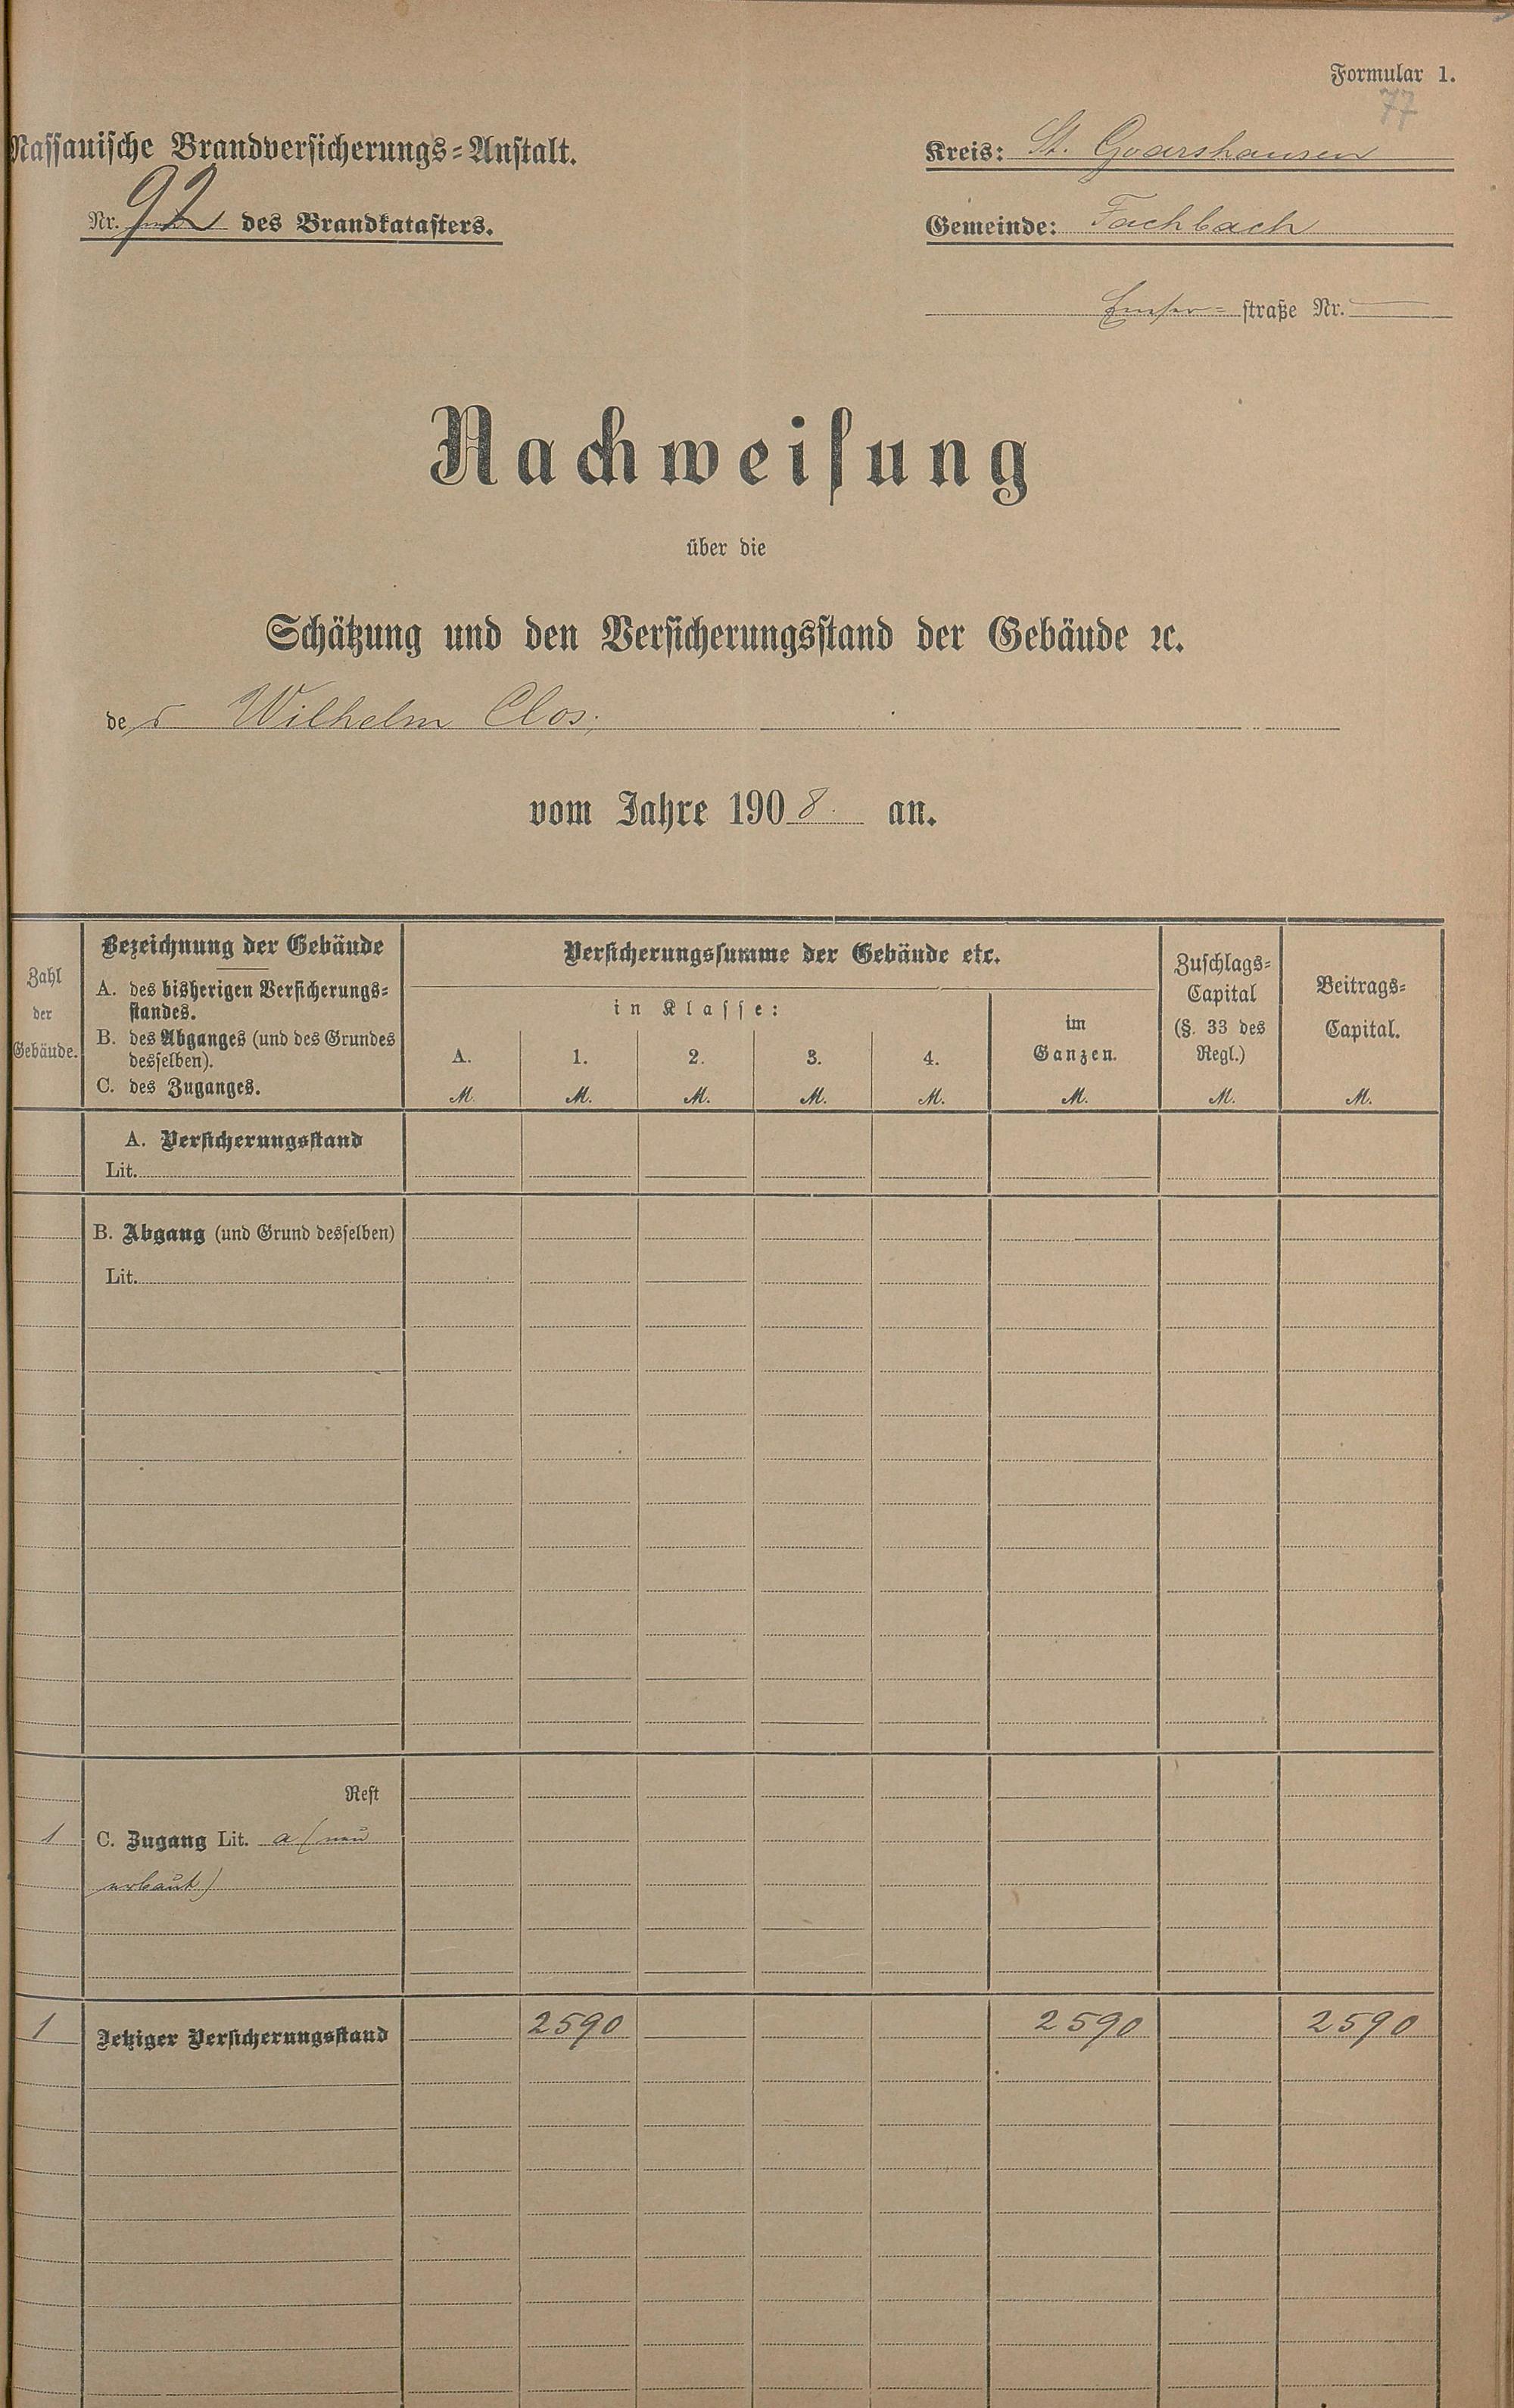 Formular 1.
77
Nassauische Brandversicherungs-Anstalt.
Kreis: St. Goarshausen
Nr. 92 des Brandkatasters.
Gemeinde: Fachbach
Emser-straße Nr. —
Nachweisung
über die
Schätzung und den Versicherungsstand der Gebäude ꝛc.
des Wilhelm Clos.
vom Jahre 1908. an.
Zahl der Gebäude.
Bezeichnung der Gebäude
A. des bisherigen Versicherungs-
standes.
B. des Abganges (und des Grundes
desselben).
C. des Zuganges.
Versicherungssumme der Gebäude etc.
in Klasse:
A. 1. 2. 3. 4.
im
Ganzen.
Zuschlags-
Capital
(§. 33 des
Regl.)
Beitrags-
Capital.
M. M. M. M. M. M. M. M.
A. Versicherungsstand
Lit.
B. Abgang (und Grund desselben)
Lit.
Rest
1 C. Zugang Lit. a (neu
erbaut)
1 Jetziger Versicherungsstand 2590 2590 2590